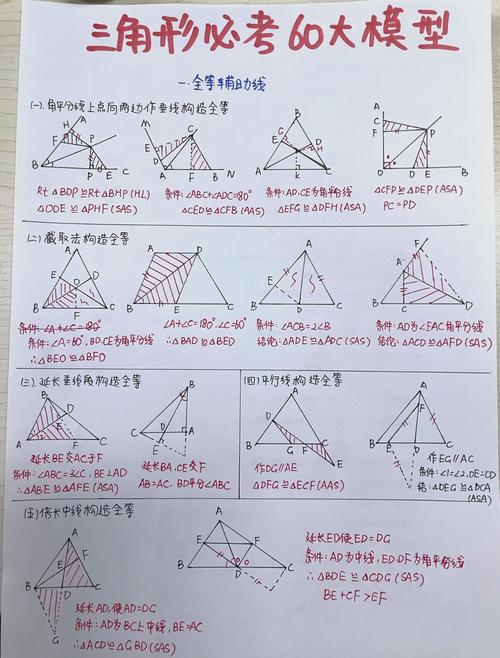 三角形必考60大模型
一.全等辅助线
(一).角平分线上点向两边作垂线构造全等
Rt△BDP≌Rt△BHP(HL)
△ODE≌△PHF(SAS)
条件:∠ABC+∠ADC=180°
△CED≌△CFB(AAS)
条件:AD.CE为角平分线
△EFG≌△DFH(ASA)
△CFP≌△DEP(ASA)
PC=PD
(二)截取法构造全等
条件:∠A+∠C=180°
条件:∠A=60°,BD.CE为角平分线
∴△BEO≌△BFO
∠A+∠C=180°.∠C=60°
∴△BAD≌△BED
条件:∠ACB=2∠B
结论:△ADE≌△ADC(SAS)
条件:AD为∠EAC角平分线
结论:△ACD≌△AFD(SAS)
(三).延长垂线段构造全等
延长BE交AC于F
条件:∠ABC=3∠C,BE⊥AD
∴△ABE≌△AFE(ASA)
延长BA,CE交F
AB=AC,BD平分∠ABC
(四)平行线构造全等
作DG∥AE
△DFG≌△ECF(AAS)
作EG∥AC
条件:∠1=∠2,DE=CD
结:△DEG≌△DCA(ASA)
(五)倍长中线构造全等
延长AD,使AD=DG
条件:AD为BC上中线,BE=AC
∴△ACD≌△GBD(SAS)
延长ED使ED=DG
条件:AD为中线,ED.DF为角平分线
∴△BDE≌△CDG(SAS)
BE+CF>EF